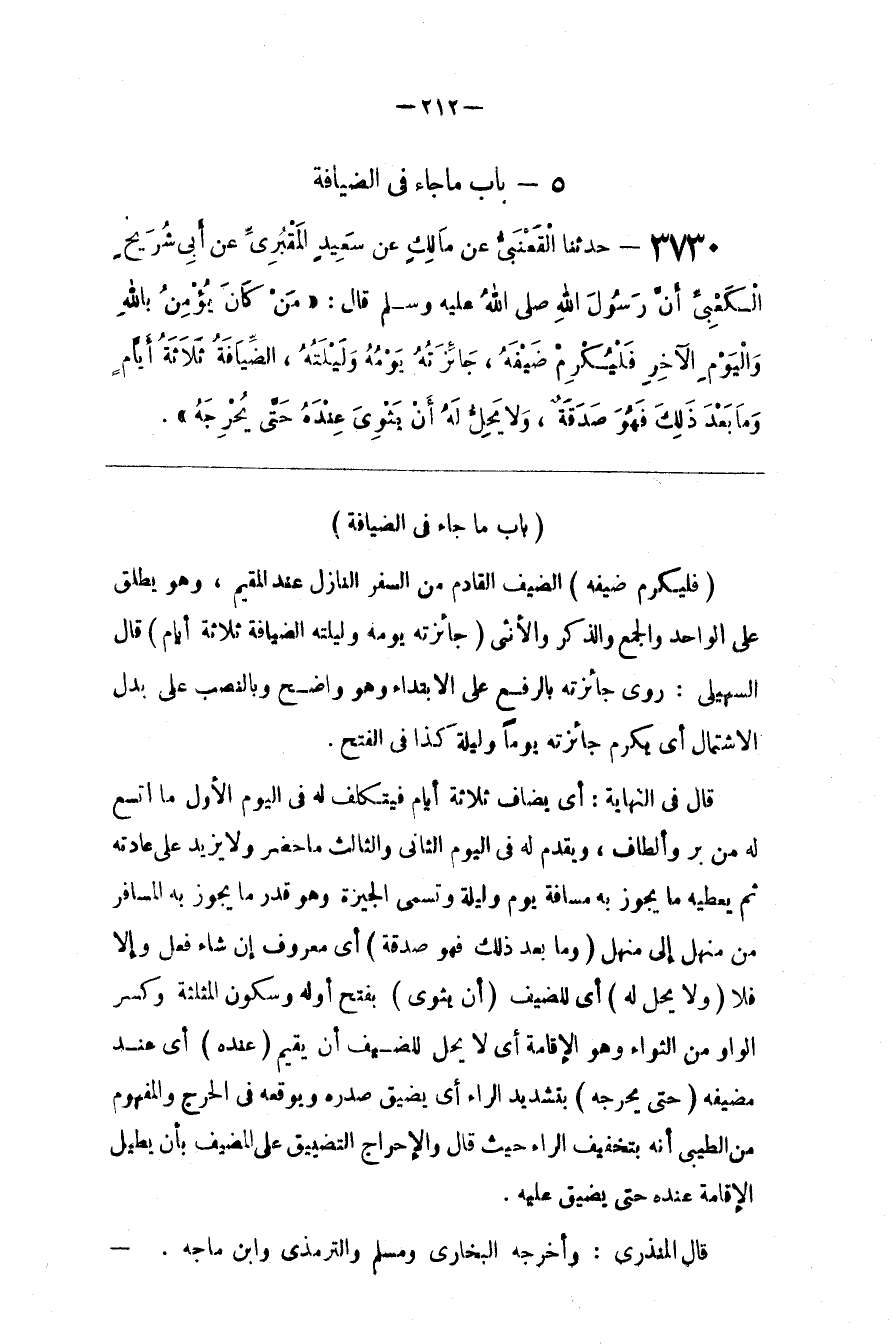 — ٢١٢ —
٥ — باب ماجاء فى الضيافة
٣٧٣٠ — حدثنا الْقَعْنَبِىُّ عن مَالِكٍ عن سَعِيدٍ الْمَقْبُرِىِّ عن أَبِى شُرَيْحٍ
الْـكَعْبِىِّ أَنَّ رَسُولَ اللهِ صلى اللهُ عليه وسـلم قال : « مَنْ كَانَ يُؤْمِنُ بِاللهِ
وَالْيَوْمِ الآخِرِ فَلْيُـكْرِمْ ضَيْفَهُ ، جَائِزَتُهُ يَوْمُهُ وَلَيْلَتُهُ ، الضِّيَافَةُ ثَلَاثَةُ أَيَّامٍ
وَمَا بَعْدَ ذَلِكَ فَهُوَ صَدَقَةٌ ، وَلا يَحِلُّ لَهُ أَنْ يَثْوِىَ عِنْدَهُ حَتَّى يُحْرِجَهُ » .
( باب ما جاء فى الضيافة )
( فليـكرم ضيفه ) الضيف القادم من السفر النازل عند المقيم ، وهو يطلق
على الواحد والجمع والذكر والأنثى ( جائزته يومه وليلته الضيافة ثلاثة أيام ) قال
السهيلى : روى جائزته بالرفـع على الابتداء وهو واضـح وبالنصب على بدل
الاشتمال أى يكرم جائزته يوماً وليلة كذا فى الفتح .
قال فى النهاية : أى يضاف ثلاثة أيام فيتـكلف له فى اليوم الأول ما اتسع
له من بر وألطاف ، ويقدم له فى اليوم الثانى والثالث ماحضر ولايزيد على عادته
ثم يعطيه ما يجوز به مسافة يوم وليلة وتسمى الجيزة وهو قدر ما يجوز به المسافر
من منهل إلى منهل ( وما بعد ذلك فهو صدقة ) أى معروف إن شاء فعل وإلا
فلا ( ولا يحل له ) أى للضيف ( أن يثوى ) بفتح أوله وسكون المثلثة وكسر
الواو من الثواء وهو الإقامة أى لا يحل للضـيف أن يقيم ( عنده ) أى عنـد
مضيفه ( حتى يحرجه ) بتشديد الراء أى يضيق صدره ويوقعه فى الحرج والمفهوم
من الطيبى أنه بتخفيف الراء حيث قال والإحراج التضييق على المضيف بأن يطيل
الإقامة عنده حتى يضيق عليه .
قال المنذرى : وأخرجه البخارى ومسلم والترمذى وابن ماجه . —